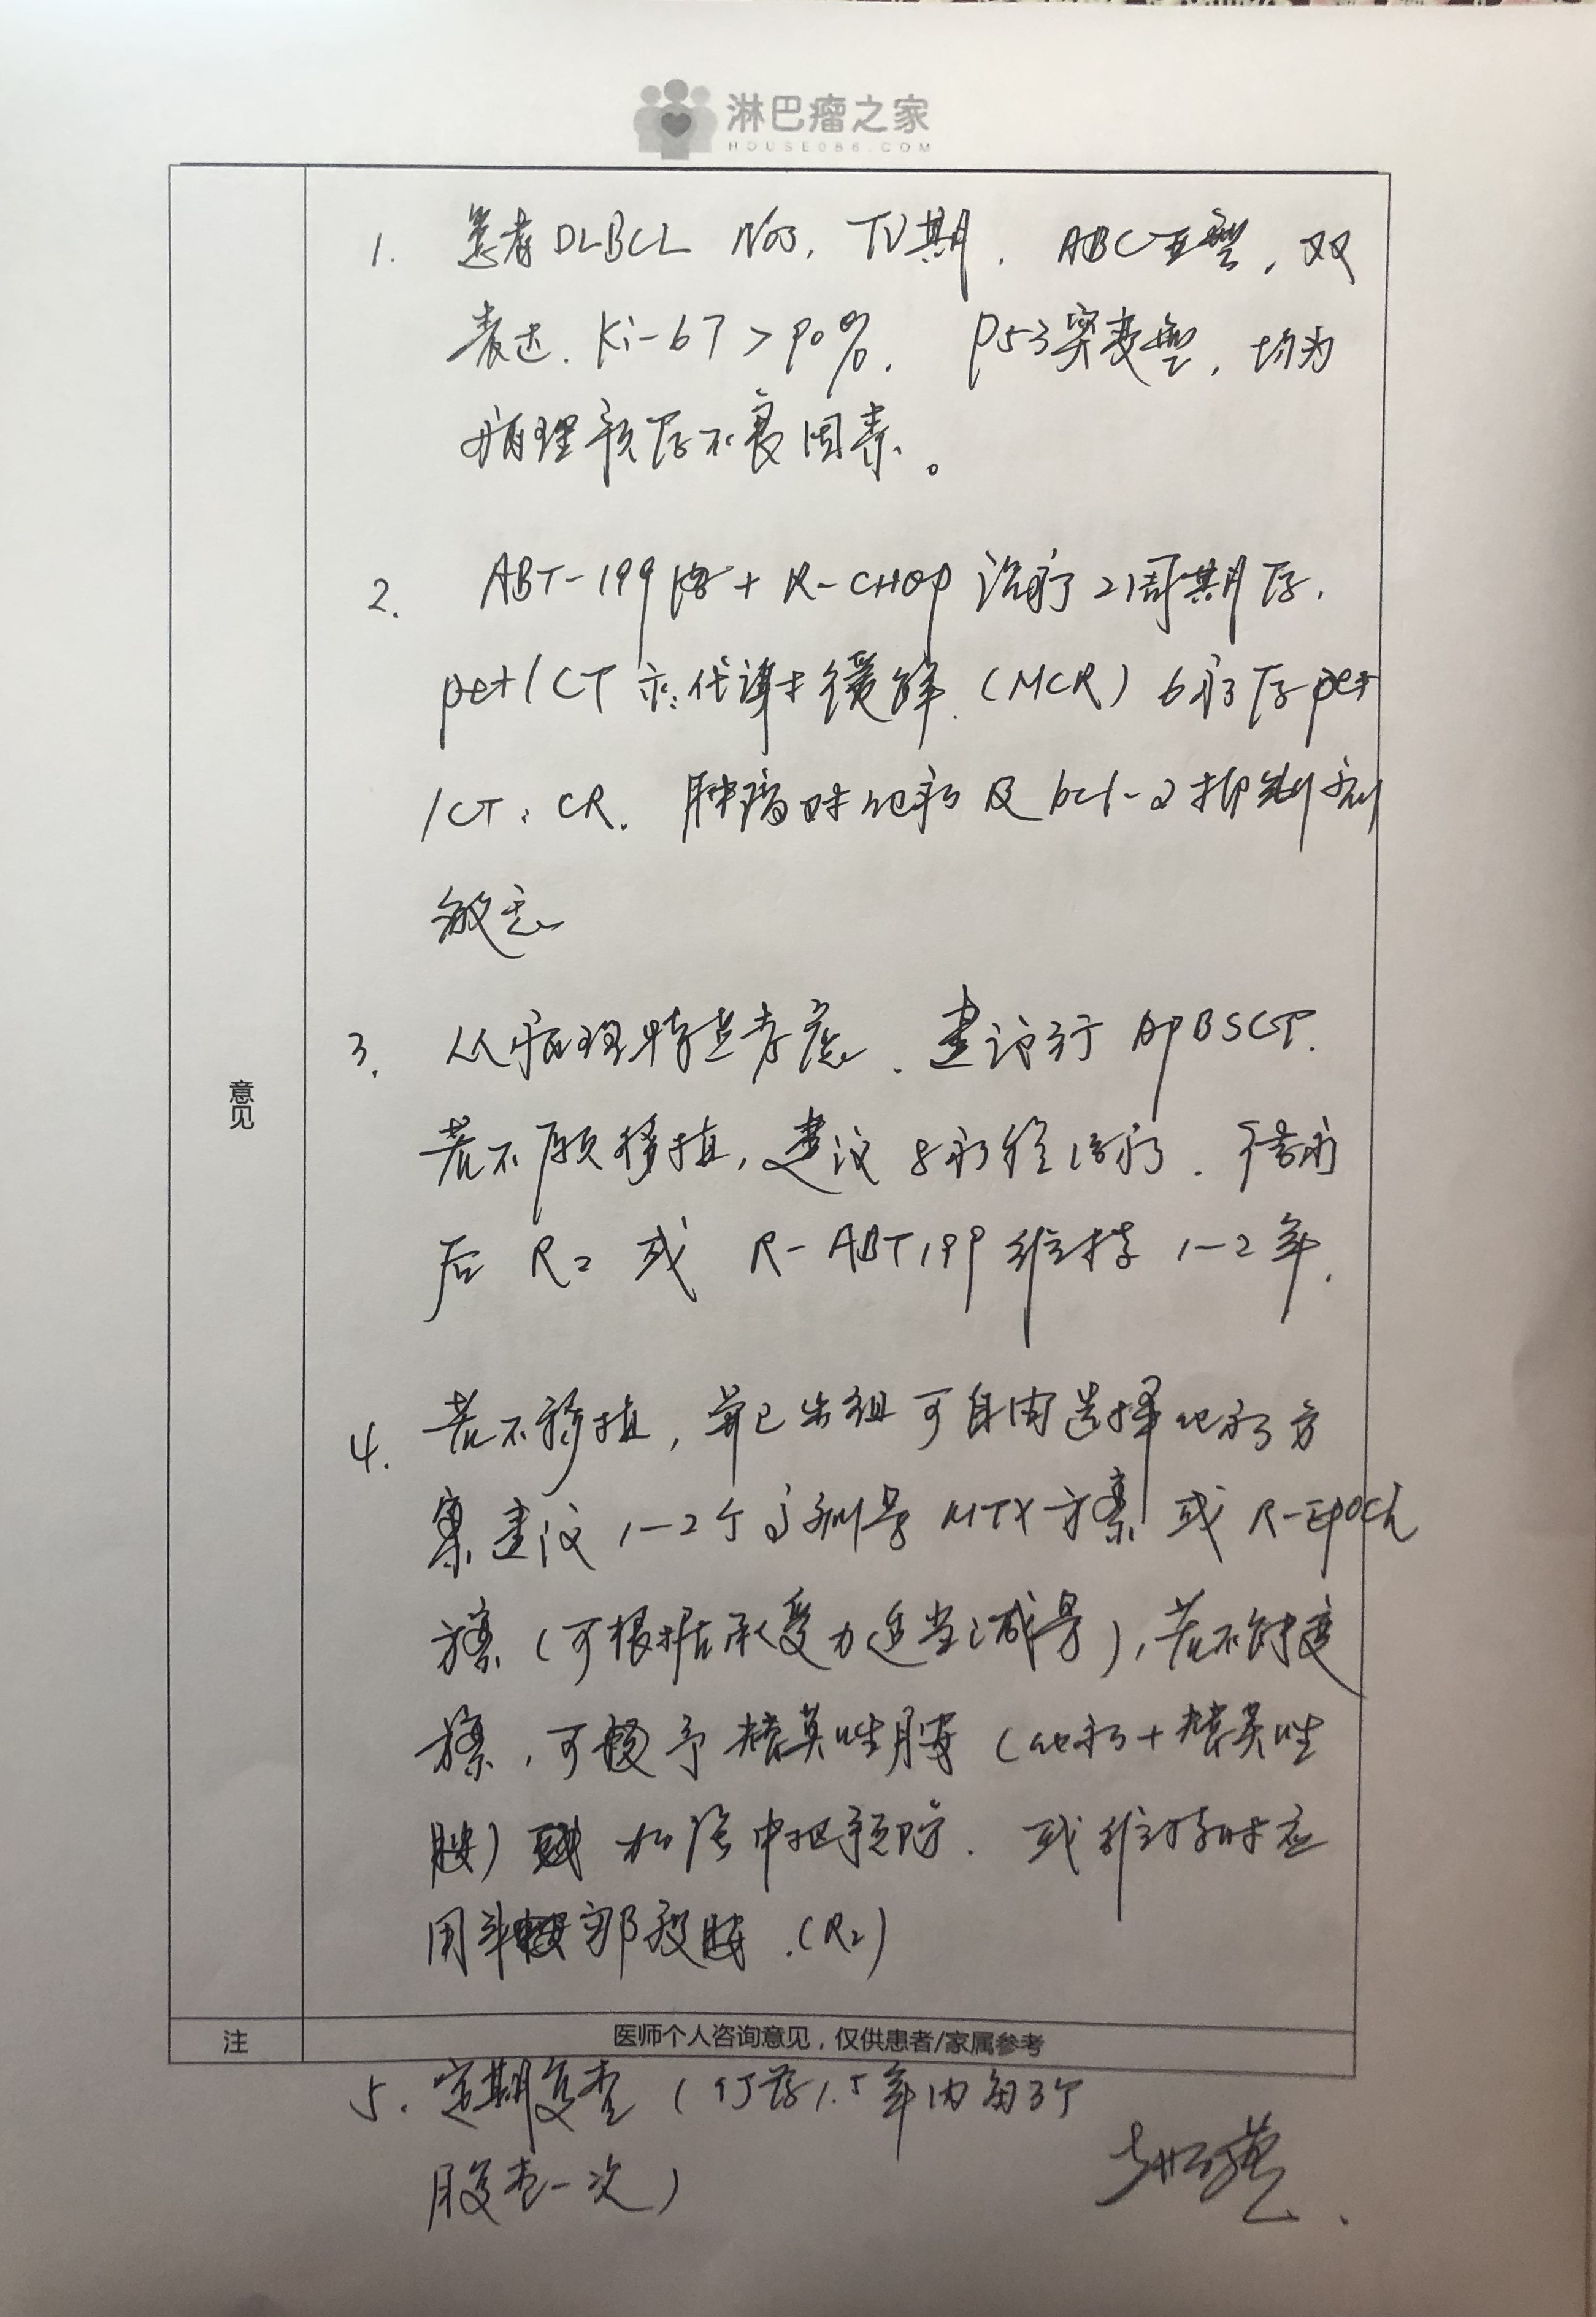 淋巴瘤之家
HOUSE086.COM
意见
1. 患者DLBCL NOS, IV期, ABC亚型, 双
表达. Ki-67>90%, P53突变型, 均为
病理预后不良因素。
2. ABT-199 + R-CHOP 治疗2周期后,
pet/CT示: 代谢 缓解. (MCR) 6疗后pet
/CT: CR. 肿瘤对化疗及bcl-2抑制剂
敏感
3. 从病理特点考虑, 建议行APBSCT.
若不愿移植, 建议8疗程治疗. 结疗
后 R2 或 R-ABT199 维持 1-2年.
4. 若不移植, 前已出组可自由选择化疗方
案建议1-2个 剂量MTX方案或R-EPOCh
方案(可根据承受力适当减量), 若不能变
方案, 可 予 替莫唑胺 (化疗+替莫唑
胺) 加强中枢预防. 或维持时应
用 那度胺. (R2)
注
医师个人咨询意见，仅供患者/家属参考
5. 定期复查 (停药1.5年内每3个
月复查一次)